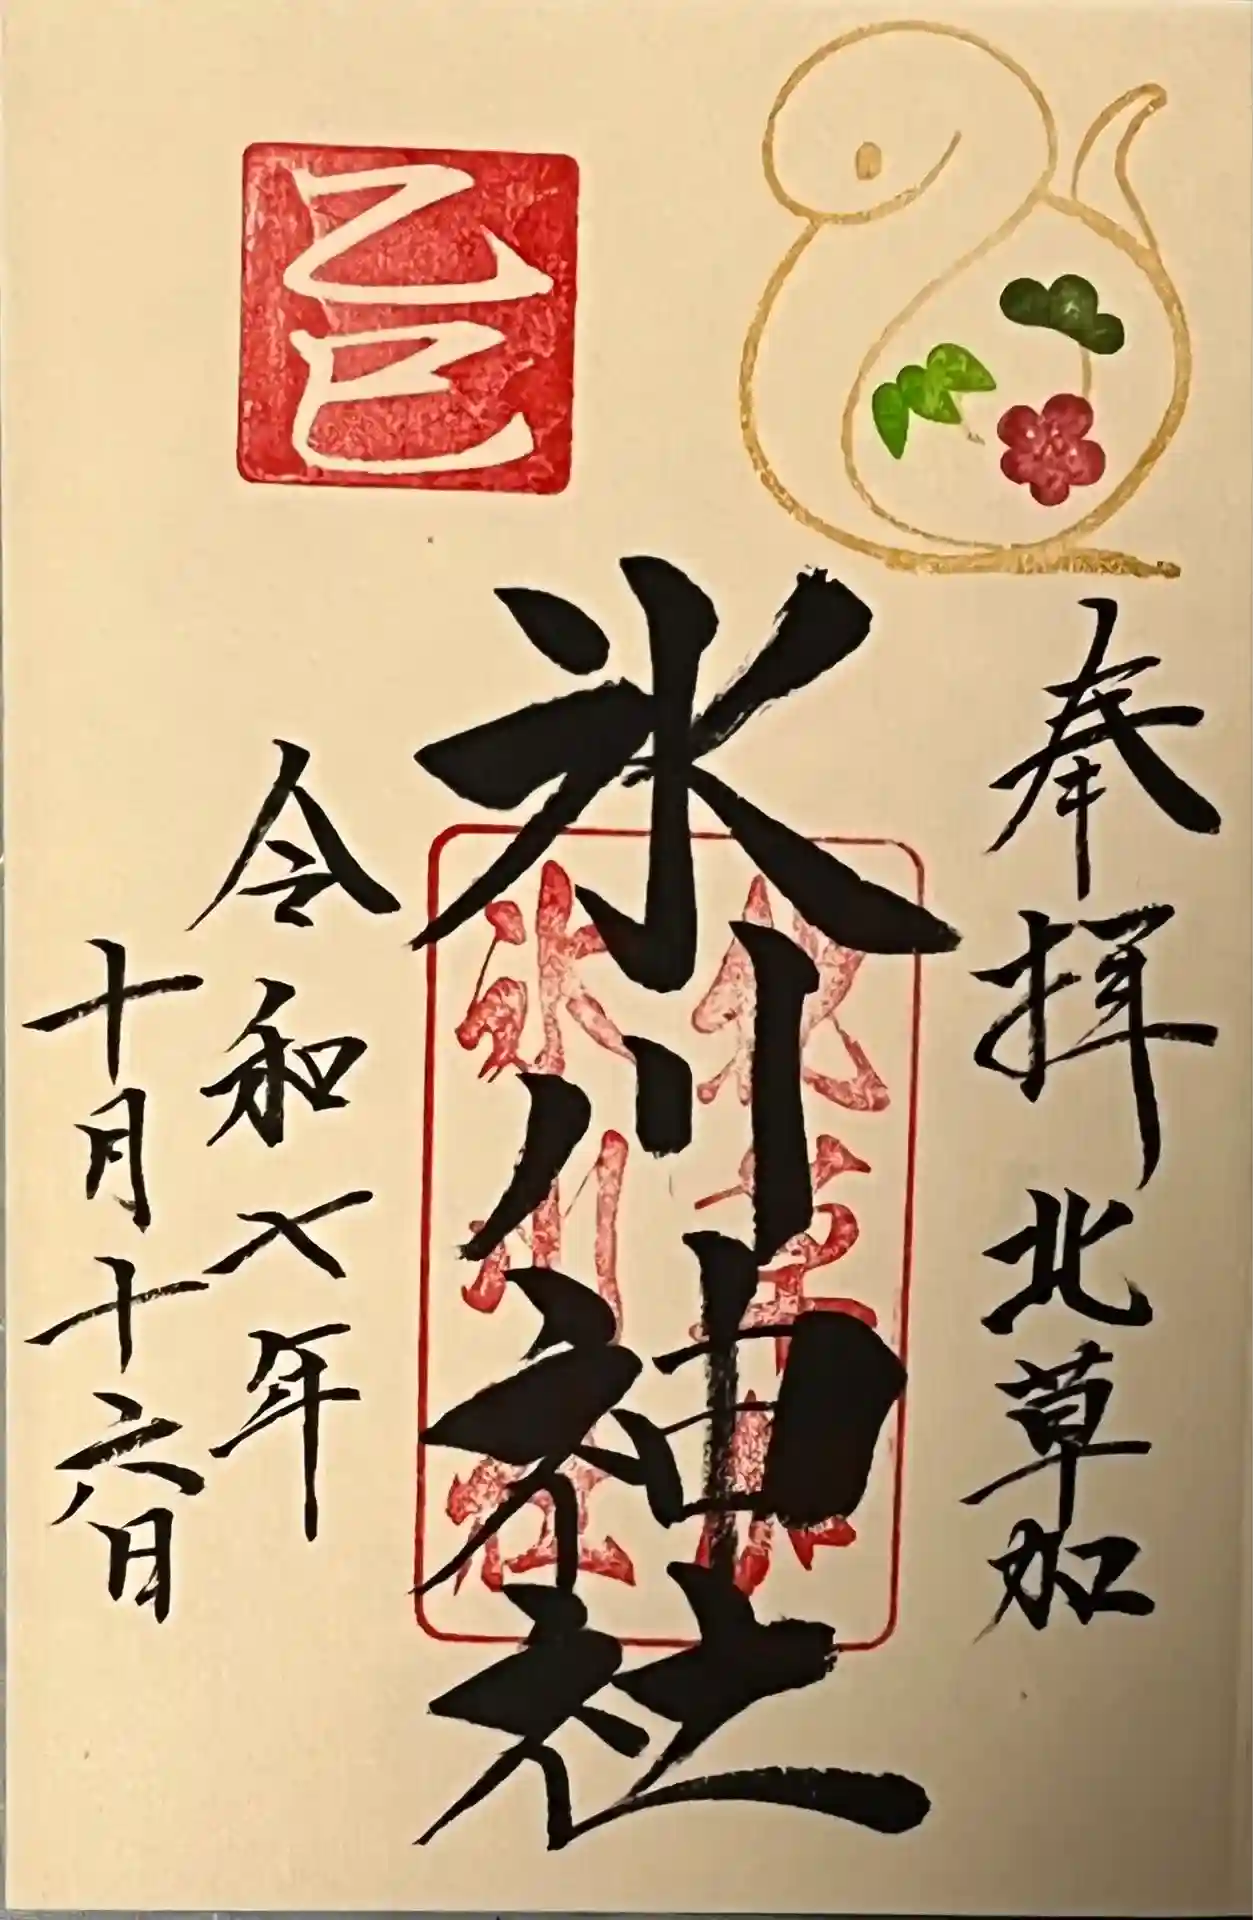 奉拝 北草加
氷川神社
北草加
氷川神社
乙巳
令和七年
十月十六日